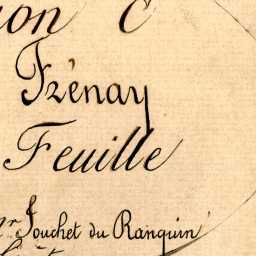 on C
Frénay
Feuille
Mr Jouchet du Ranquin